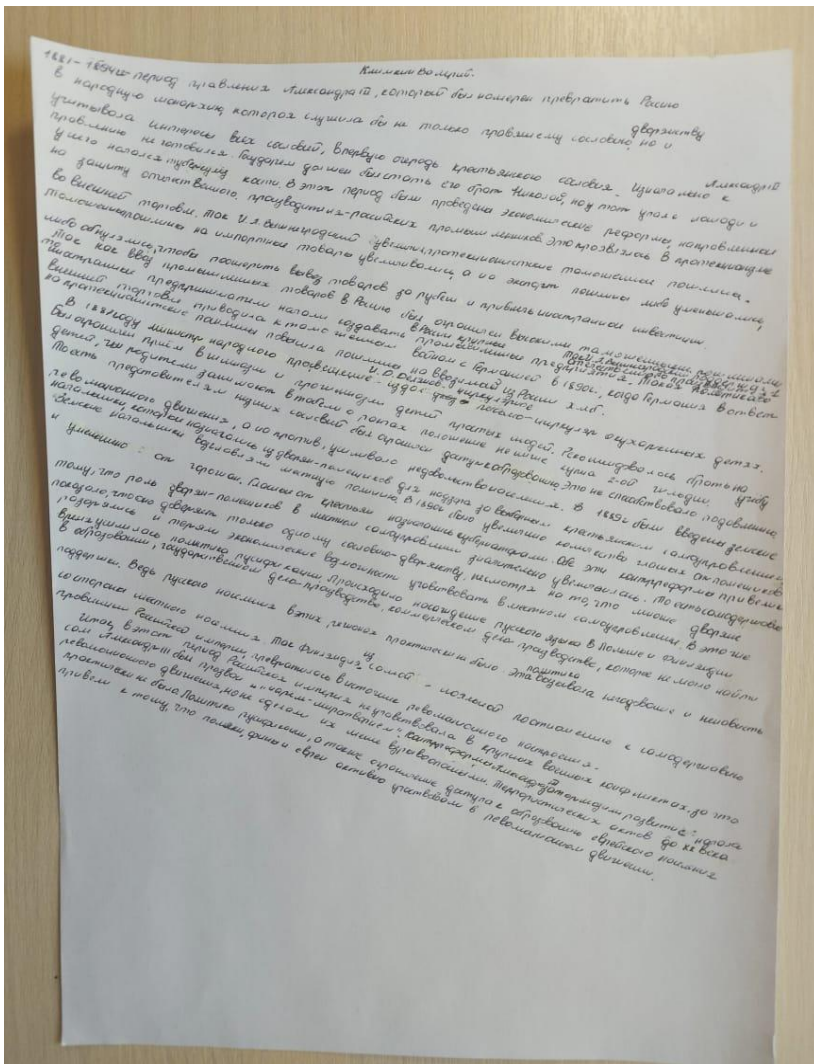 Климкин Валерий.
1881-1894 гг - период правления Александра III, который был намерен превратить Россию
в народную монархию, которая служила бы не только правящему сословию, дворянству но и
учитывала интересы всех сословий, в первую очередь крестьянского сословия. Изначально Александр III к
правлению не готовился. Государем должен был стать его брат Николай, но тот упал с лошади и
у него начался туберкулёз кости. В этот период были проведены экономические реформы, направленные
на защиту отечественного производителя - российских промышленников. Это проявилось в протекционизме
во внешней торговле. Так И.А. Вышнеградский увеличил протекционистские таможенные пошлины.
пошлины на импортные товары увеличивались, а на экспорт пошлины либо уменьшались,
либо обнулялись, чтобы расширить вывоз товаров за рубеж и привлечь иностранные инвестиции.
Так как ввоз промышленных товаров в Россию был ограничен высокими таможенными пошлинами
иностранные предприниматели начали создавать в России крупные промышленные предприятия. Такая политика во
внешней торговле приводила к таможенным войнам с Германией в 1890г., когда Германия в ответ
на протекционистские пошлины повысила пошлины на ввозимый из России хлеб.
В 1887 году министр народного просвещения И.Д. Делянов издал циркуляр о кухаркиных детях.
Был ограничен приём в гимназии и прогимназии детей простых людей. Рекомендовалось брать на учёбу
детей, чьи родители занимают в табели о рангах положение не ниже купца 2-ой гильдии.
То есть представителям низших сословий был ограничен доступ к образованию. Это не способствовало подавлению
революционного движения, а наоборот, усиливало недовольство населения. В 1889г были введены земские
начальники, которые назначались из дворян-помещиков для надзора за выборным крестьянским самоуправлением
Земские начальники возглавляли местную полицию. В 1890г было увеличено количество гласных от помещиков
и уменьшено от горожан. Гласные от крестьян назначались губернатором. Все эти контрреформы привели к
тому, что роль дворян-помещиков в местном самоуправлении значительно увеличилась. То есть самодержавие
показало, что оно доверяет только одному сословию - дворянству, несмотря на то, что многие дворяне
разорялись и теряли экономические возможности участвовать в местном самоуправлении. В это же
время усилилась политика русификации. Происходило насаждение русского языка в Польше и Финляндии
в образовании, государственном делопроизводстве, коммерческом делопроизводстве, которое не могло найти
поддержки. Ведь русского населения в этих регионах практически не было. Эта политика вызывала негодование и ненависть
со стороны местного населения. Так Финляндия из самой лояльной по отношению к самодержавию
провинции Российской империи, превратилась в источник революционного настроения.
Итог: в этот период Российская империя не участвовала в крупных военных конфликтах, за что
сам Александр III был прозван "царём-миротворцем". Контрреформы Александра III затормозили развитие
революционного движения, но не сделали их менее Террористических актов до XX века
практически не было. Политика русификации, а также ограничение доступа к образованию еврейского населения
привели к тому, что поляки, финны и евреи активно участвовали в революционном движении.